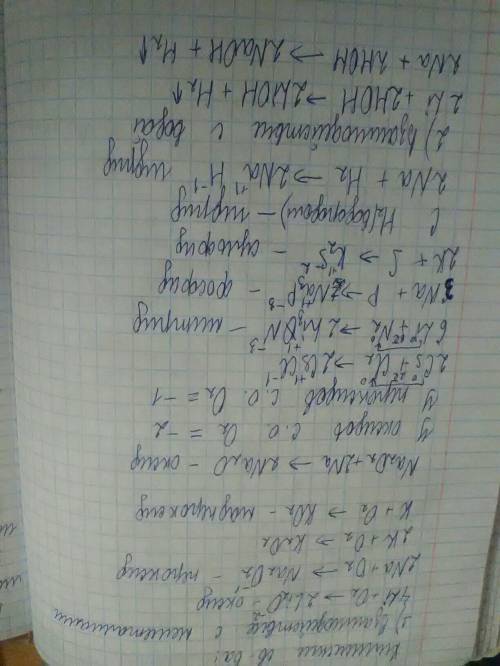 Химические св-ва:
1) Взаимодействие с неметаллами
4Li + O₂ → 2Li₂O⁻² - оксид
2Na + O₂ → Na₂O₂⁻¹ - пероксид
2K + O₂ → K₂O₂
K + O₂ → KO₂ - надпероксид
Na₂O₂ + 2Na → 2Na₂O - оксид
У оксидов с.о. O₂ = -2
У пероксидов с.о. O₂ = -1
2Cs⁰ + Cl₂⁰ → 2Cs⁺¹Cl⁻¹
6Li⁰ + N₂⁰ → 2Li₃⁺¹N⁻³ - нитрид
3Na + P → Na₃⁺¹P⁻³ - фосфид
2K + S → K₂⁺¹S⁻² - сульфид
С H₂(водородом) - гидрид
2Na + H₂ → 2Na⁺¹H⁻¹ гидрид
2) Взаимодействие с водой
2Li + 2HOH → 2LiOH + H₂↑
2Na + 2HOH → 2NaOH + H₂↑